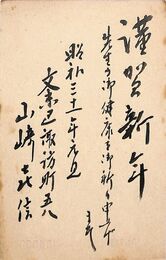 謹賀新年
先生の御健康を御祈り申上
ます
昭和三十一年元旦
文京区諏訪町五八
山崎